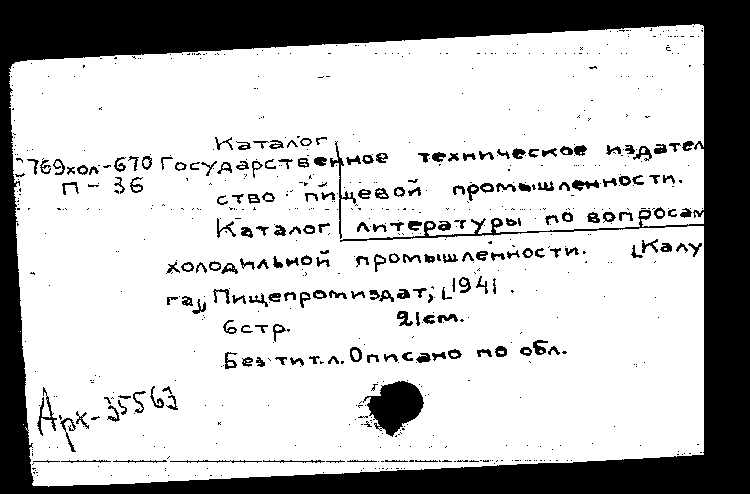 Каталог
769хол-670 Государственное техническое издател
П-36
ство пищевой промышленности.
Каталог литературы по вопросам
холодильной промышленности. [Калу
га], Пищепромиздат, [1941.
6стр. 21см.
Без тит.л. Описано по обл.
Арх-35563